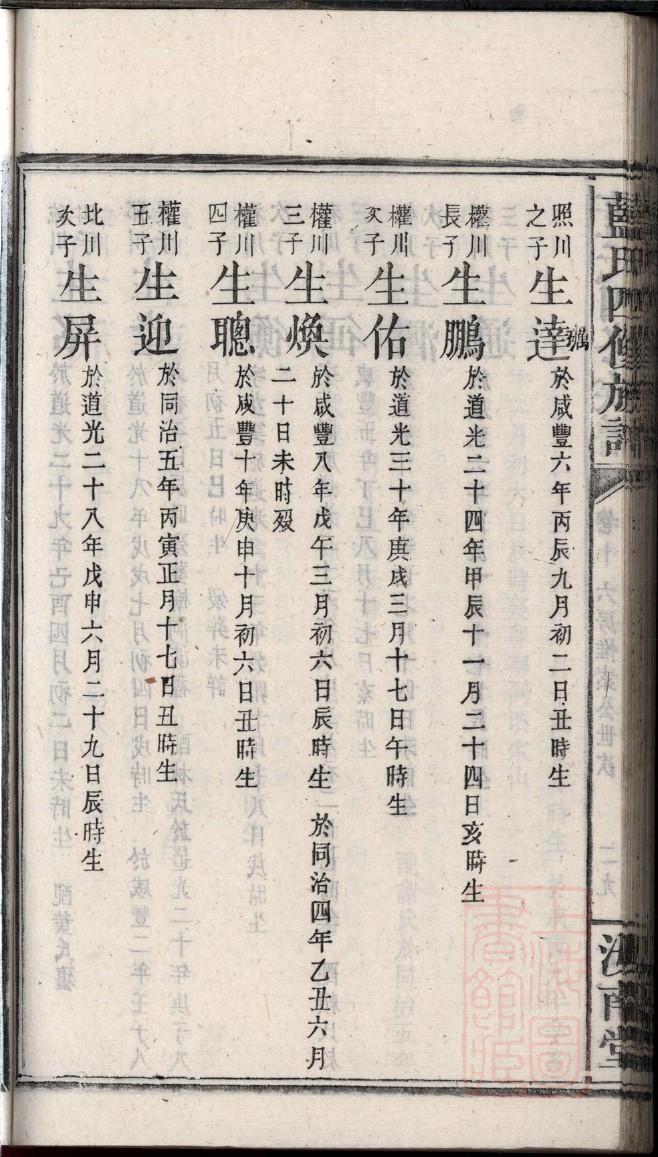 藍氏四修族譜
卷十 六房惟
公世次
二九
汝南堂
照川之子 生達 於咸豐六年丙辰九月初二日丑時生
權川長子 生鵬 於道光二十四年甲辰十一月二十四日亥時生
權川次子 生佑 於道光三十年庚戌三月十七日午時生
權川三子 生煥 於咸豐八年戊午三月初六日辰時生 於同治四年乙丑六月
二十日未時歿
權川四子 生聰 於咸豐十年庚申十月初六日丑時生
權川五子 生迎 於同治五年丙寅正月十七日丑時生
北川次子 生屏 於道光二十八年戊申六月二十九日辰時生